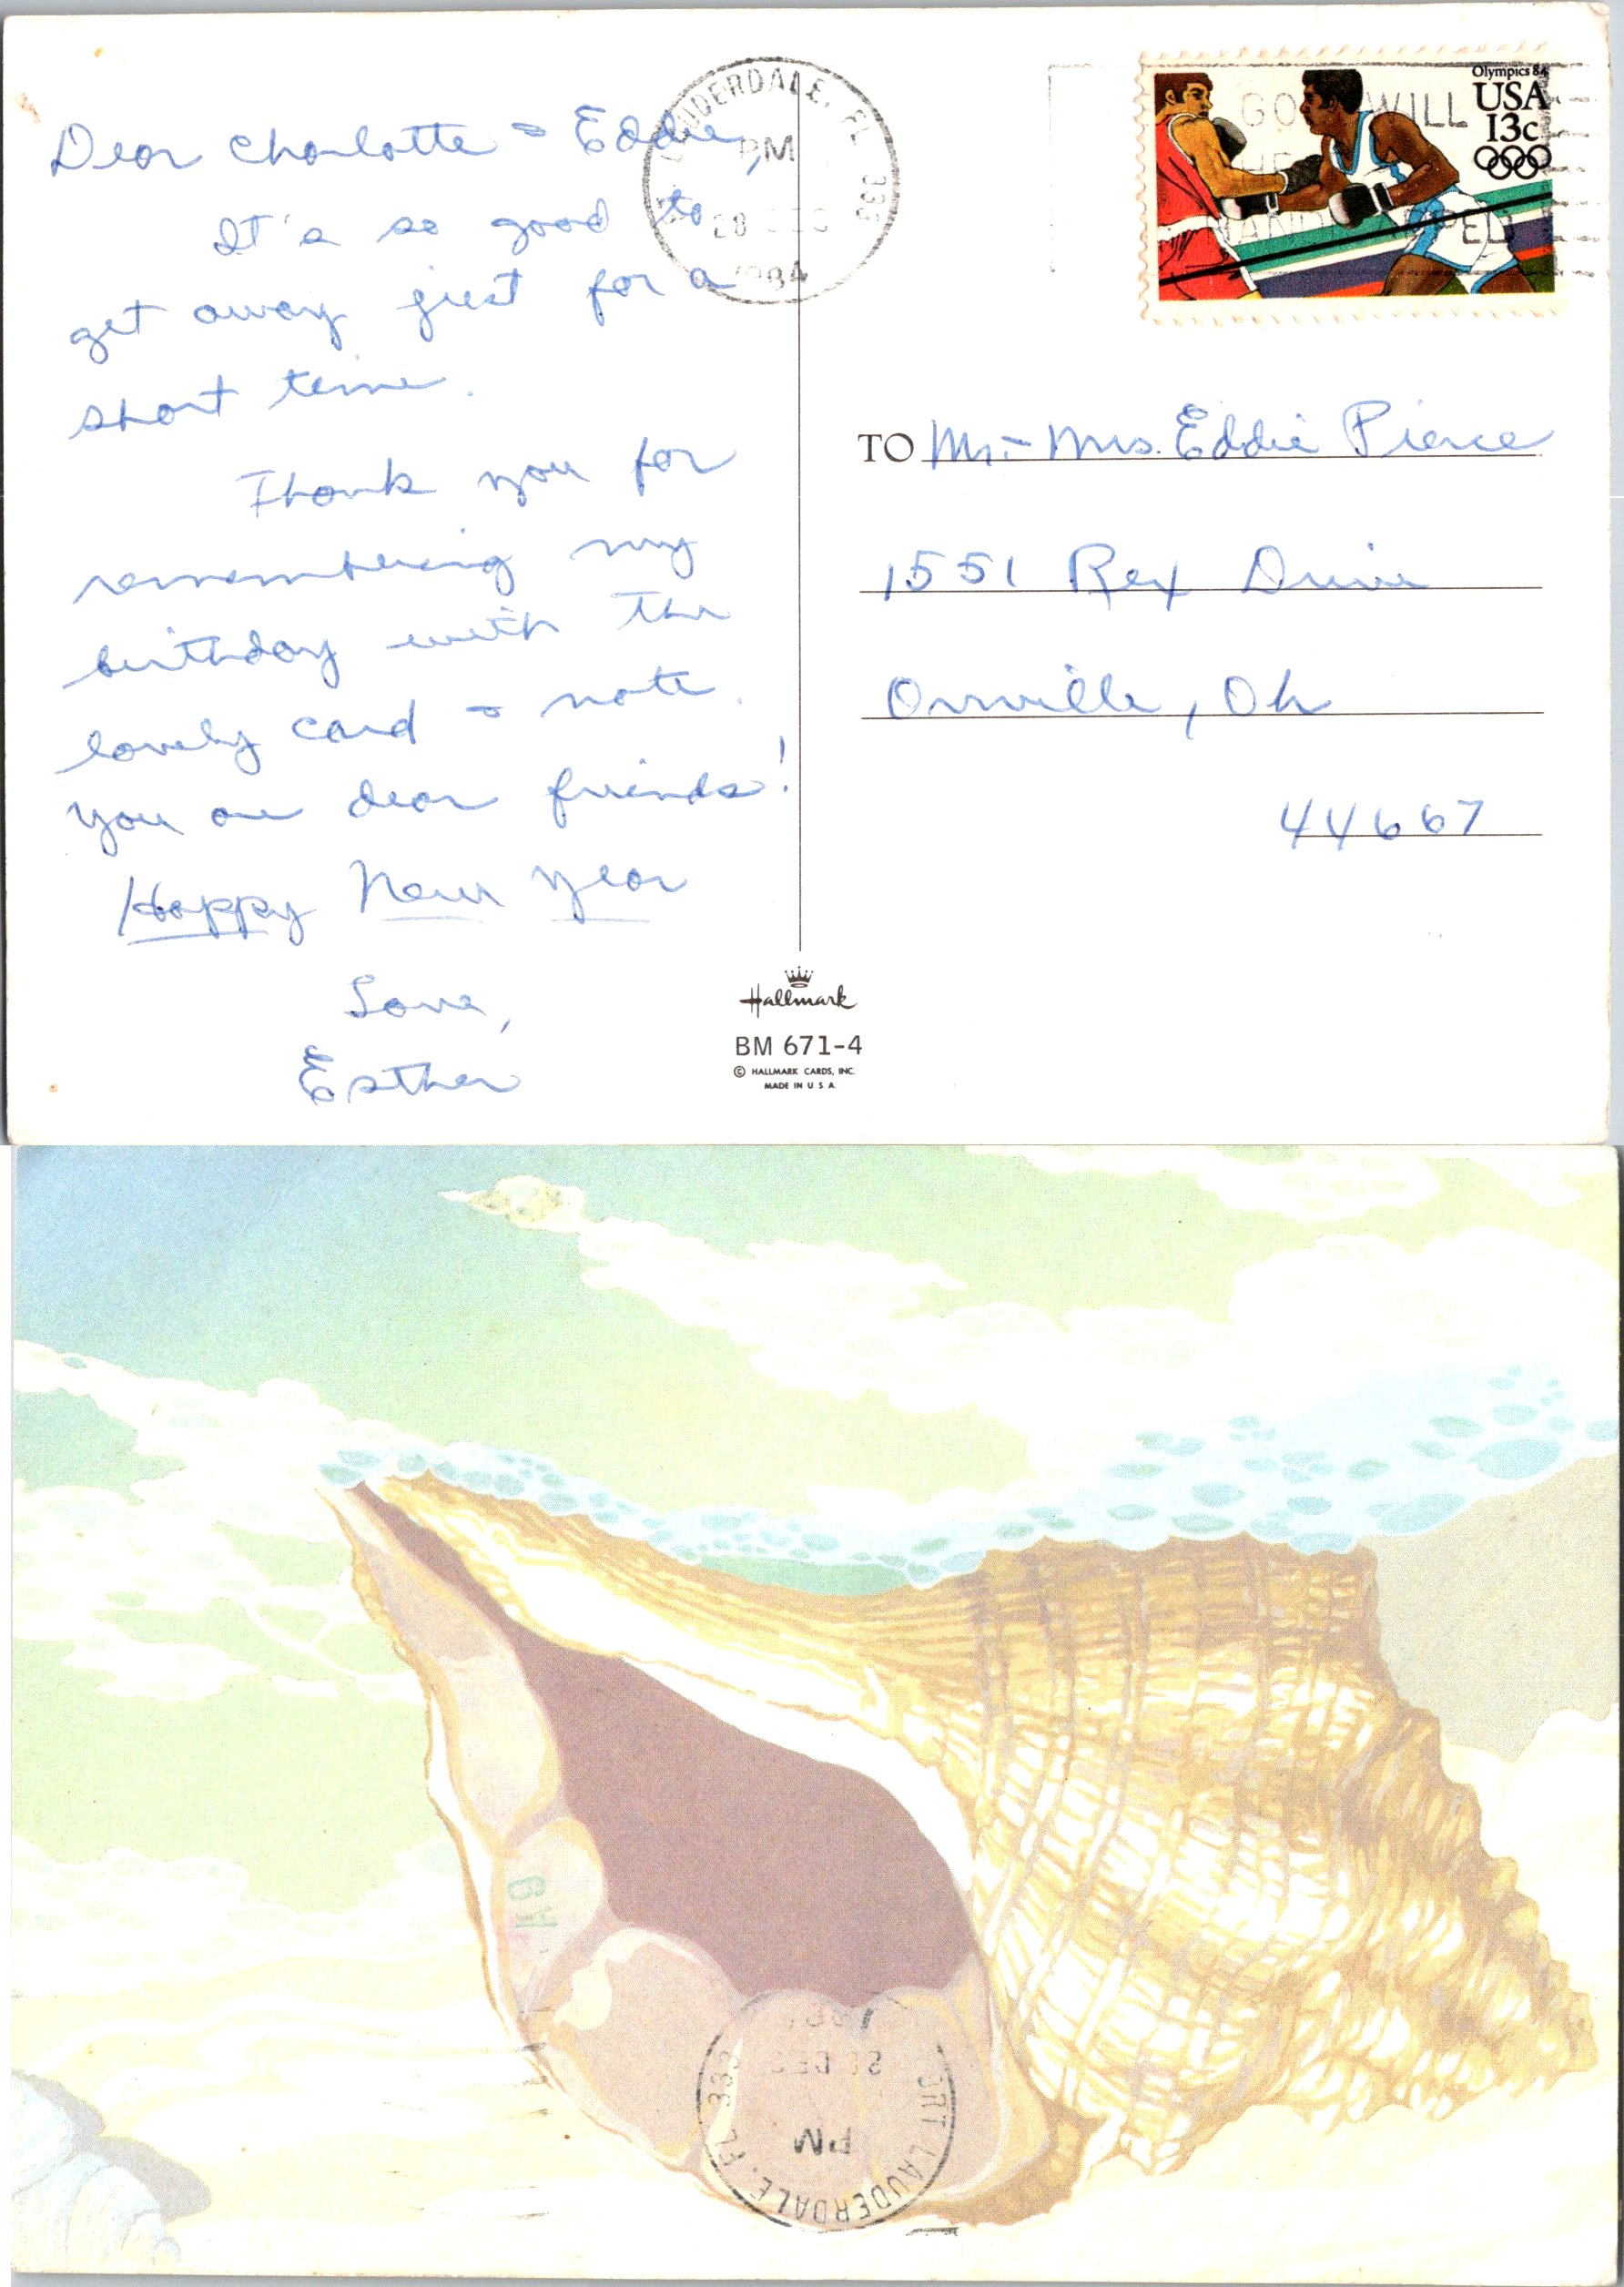 Dear Charlotte & Eddie,
It's so good to
get away just for a
short time.
Thank you for
remembering my
birthday with the
lovely card & note.
You are dear friends!
Happy New Year
Love,
Esther
LAUDERDALE, FL 333
PM
28 DEC
1984
GOODWILL
HANDICAPPED
Olympics 84
USA
13c
TO Mr. - Mrs. Eddie Pierce
1551 Rex Drive
Orrville, Oh
44667
Hallmark
BM 671-4
© HALLMARK CARDS, INC.
MADE IN U S A
FORT LAUDERDALE, FL 333
PM
28 DEC